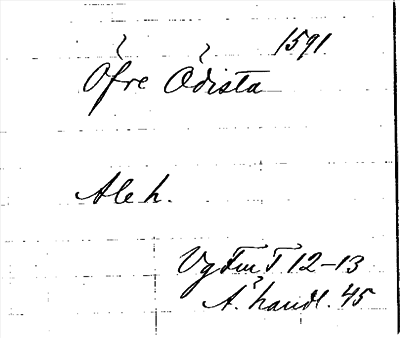 1591.
Öfre Ödista
Ale h.
Vg Fm T 12-13
Ä. handl. 45